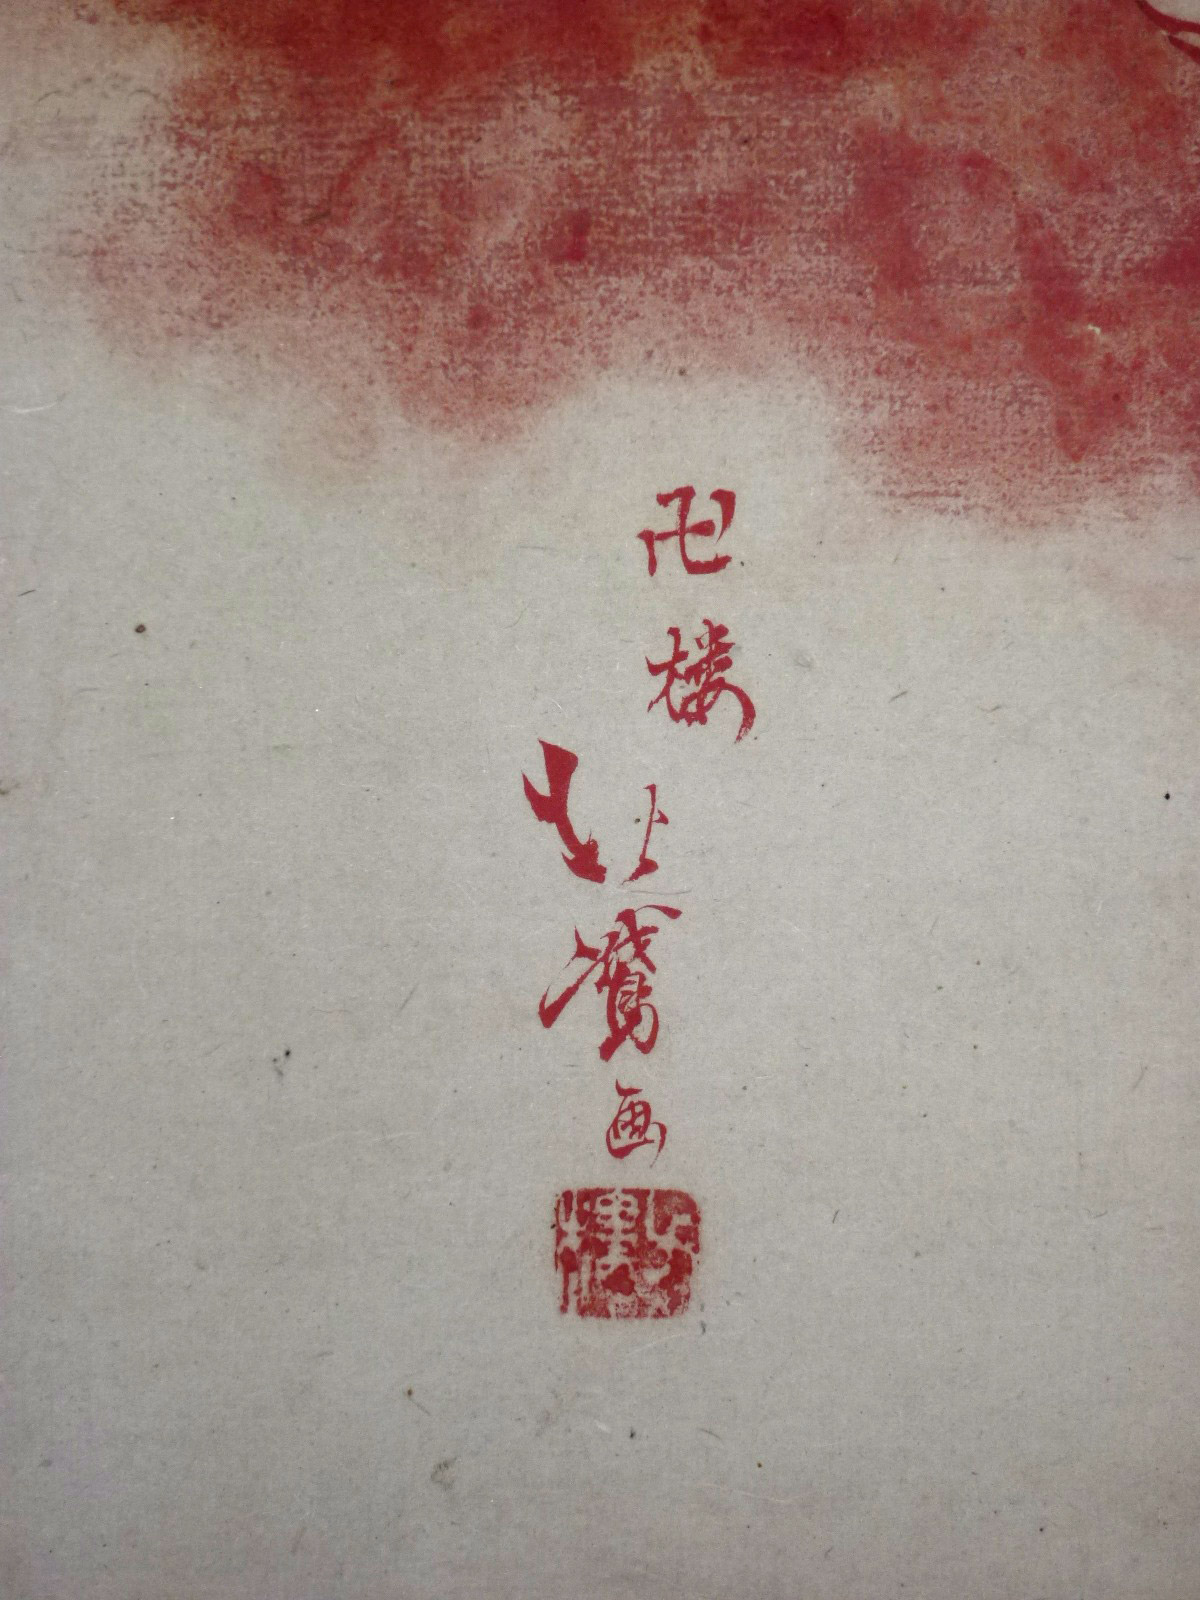 卍楼北鵞画